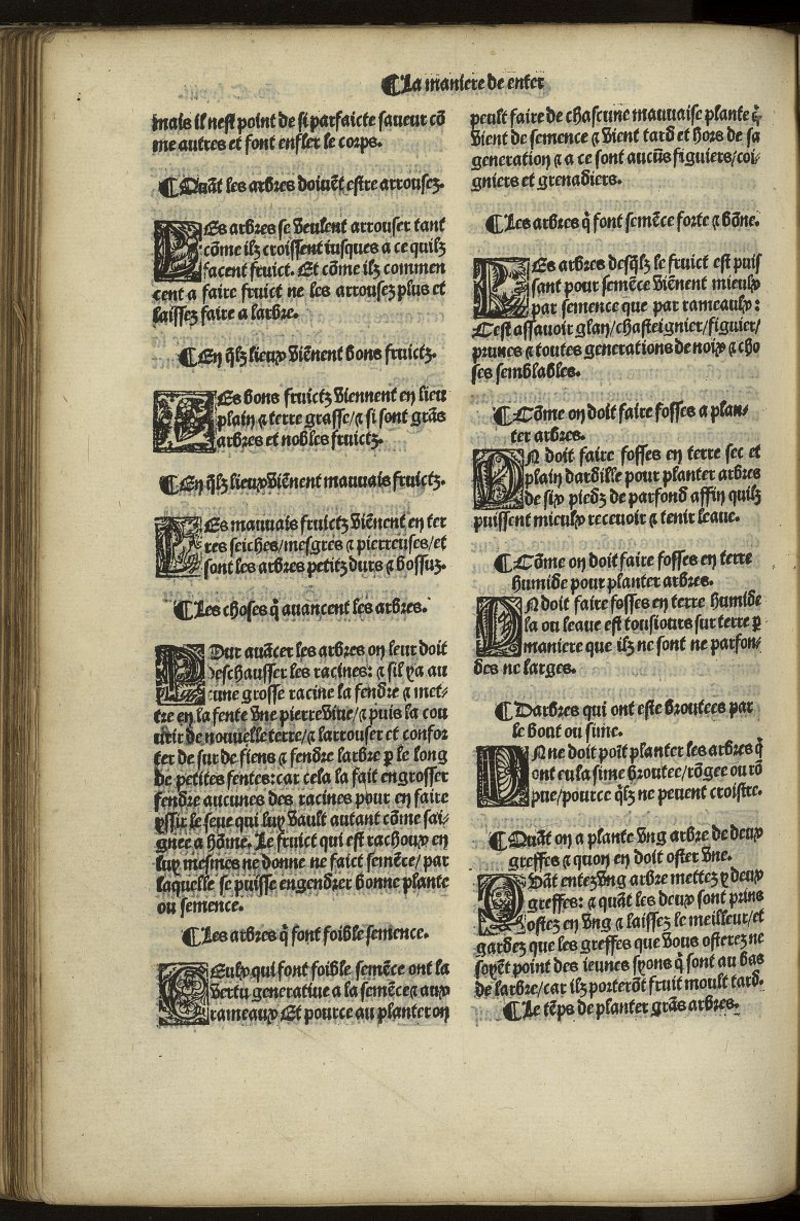 ¶La maniere de enter
mais il nest point de si parfaicte saueur cõ
me autres et font enfler le corps.
¶Quãt les arbres doiuẽt estre arrousez.
LEs arbres se veulent arrouser tant
cõme ilz croissent iusques a ce quilz
facent fruict. Et cõme ilz commen
cent a faire fruict ne les arrousez plus et
laissez faire a larbre.
¶En q̃lz lieux viẽnent bons fruictz.
LEs bons fruictz viennent en lieu
plain ⁊ terre grasse/⁊ si sont grãs
arbres et nobles fruictz.
¶En q̃lz lieux viẽnent mauuais fruictz.
LEs mauuais fruictz viẽnent en ter
res seiches/mesgres ⁊ pierreuses/et
sont les arbres petitz durs ⁊ bossuz.
¶Les choses q̃ auancent les arbres.
POur auãcer les arbres on leur doit
deschausser les racines: ⁊ sil ya au
cune grosse racine la fendre ⁊ met-
tre en la fente vne pierre viue/⁊ puis la cou
urir de nouuelle terre/⁊ larrouser et confor
ter de sur de fiens ⁊ fendre larbre ꝑ le long
de petites fentes: car cela la fait engrosser
fendre aucunes des racines pour en faire
yssir le seue qui luy vault autant cõme sai-
gnee a hõme. Le fruict qui est rachoux en
luy mesmes ne donne ne faict semẽce/ par
laquelle se puisse engendrer bonne plante
ou semence.
¶Les arbres q̃ font foible semence.
CEulx qui font foible semẽce ont la
vertu generatiue a la semẽce⁊ aux
rameaux Et pource au planter on
peult faire de chascune mauuaise plante q̃
vient de semence ⁊ vient tard et hors de sa
generation ⁊ a ce sont aucũs figuiers/coi-
gniers et grenadiers.
¶Les arbres q̃ font semẽce forte ⁊ bõne.
LEs arbres desq̃lz le fruict est puis
sant pour semẽce viẽnent mieulx
par semence que par rameaulx:
Cest assauoir glan/chasteignier/figuier/
prunes ⁊ toutes generations de noix ⁊ cho
ses semblables.
¶Cõme on doit faire fosses a plan-
ter arbres.
ON doit faire fosses en terre sec et
plain dardille pour planter arbres
de six piedz de parfond affin quilz
puissent mieulx receuoir ⁊ tenir leaue.
¶Cõme on doit faire fosses en terre
humide pour planter arbres.
ON doit faire fosses en terre humide
la ou leaue est tousiours sur terre ꝑ
maniere que ilz ne sont ne parfon-
des ne larges.
¶Darbres qui ont este broutees par
le bout ou sime.
ON ne doit poĩt planter les arbres q̃
ont eu la sime broutee/rõgee ou rõ
pue/pource q̃lz ne peuent croistre.
¶Quãt on a plante vng arbre de deux
greffes ⁊ quon en doit oster vne.
QUãt entez vng arbre mettez y deux
greffes: ⁊ quãt les deux sont prins
ostez en vng ⁊ laissez le meilleur/et
gardez que les greffes que vous osterez ne
soyẽt point des ieunes syons q̃ sont au bas
de larbre/car ilz porterõt fruit moult tard.
¶Le tẽps de planter grãs arbres.